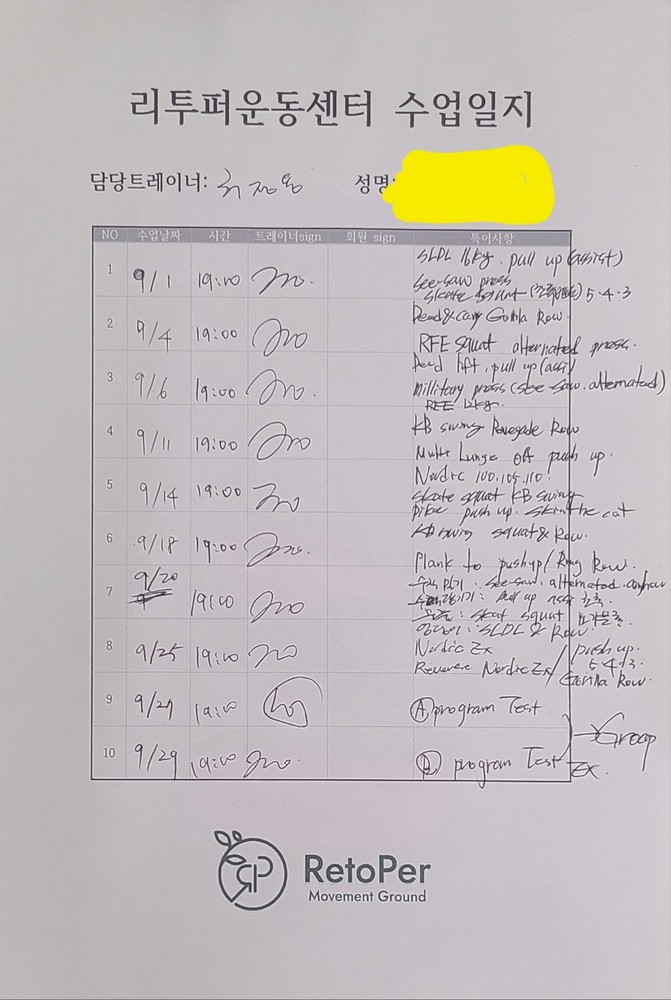 리투퍼운동센터 수업일지
담당트레이너: 성명:
NO 수업날짜 시간 트레이너sign 회원 sign 특이사항
1 9/1 19:00 SLDL 16kg. pull up (assist)
see-saw press
skate squat 5-4-3
2 9/4 19:00 Dead & carry Gorilla Row.
RFE squat alternated press.
3 9/6 19:00 Dead lift. pull up (assi)
millitary press (see-saw. alternated)
RFE 12kg.
4 9/11 19:00 KB swing Renegade Row
Multi Lunge off push up.
5 9/14 19:00 Nordic 100.105.110.
skate squat KB swing
pike push up. skin the cat
6 9/18 19:00 KB swing squat & Row.
Plank to pushup / Ring Row.
7 9/20 19:00 수직 밀기 : see-saw. alternated.
수직당기기 : Pull up
: skat squat
: SLDL & Row
8 9/25 19:00 Nordic Ex / push up.
Reverse Nordic Ex / 5-4-3.
Gorilla Row.
9 9/27 19:00 Ⓐ program Test
→ Group
10 9/29 19:00 Ⓑ program Test Ex.
RP
RetoPer
Movement Ground